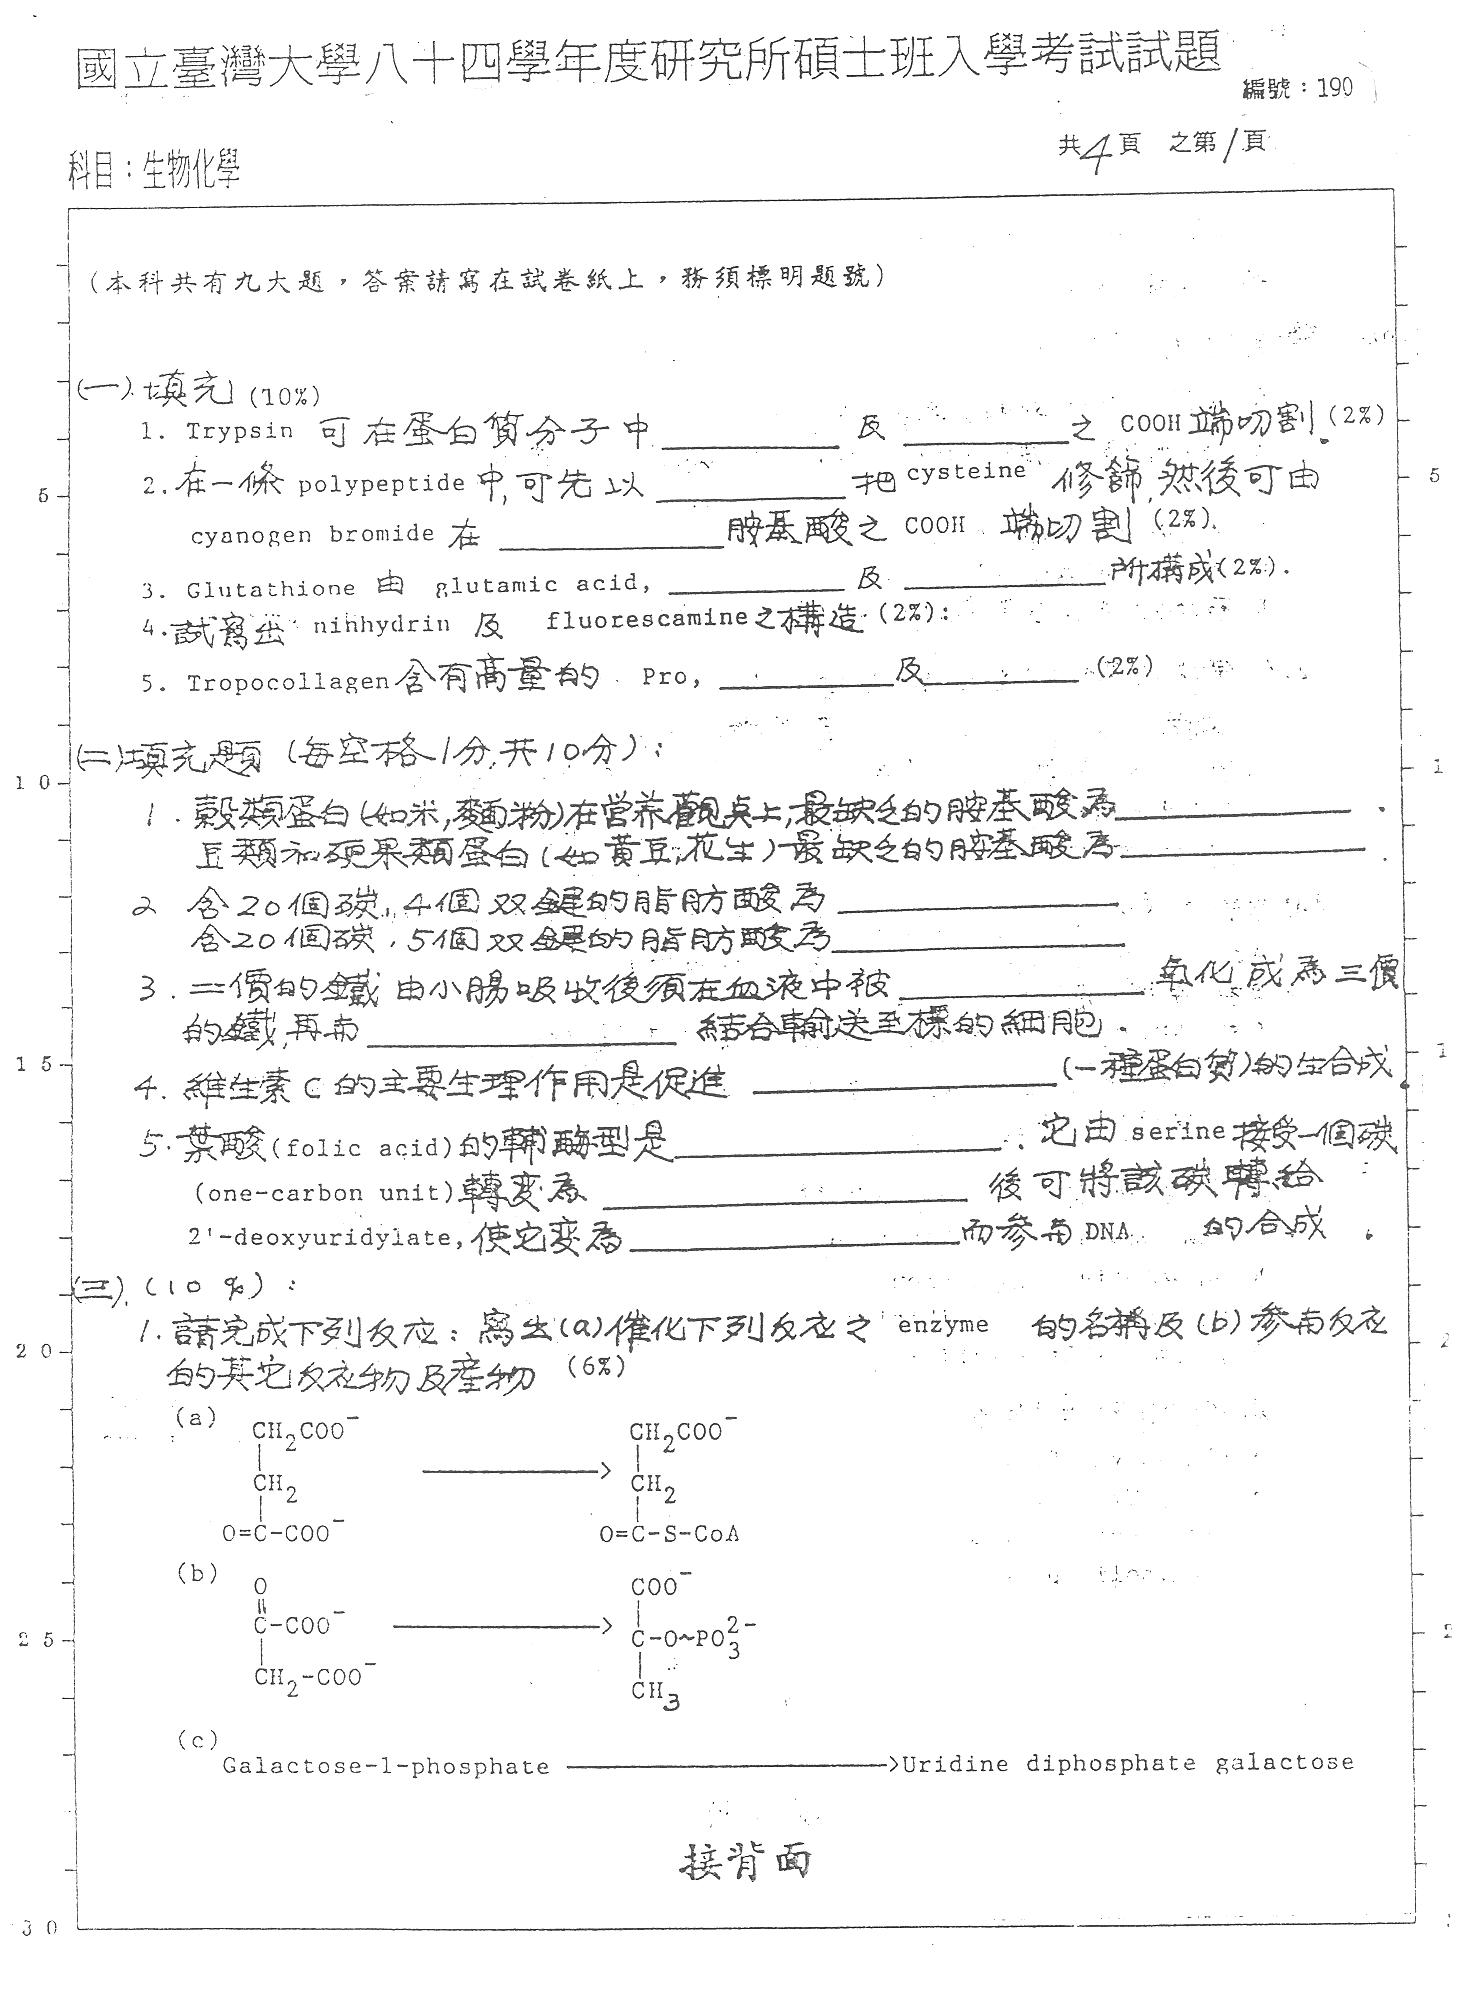 國立臺灣大學八十四學年度研究所碩士班入學考試試題
編號：190
科目：生物化學
共4頁 之第1頁
(本科共有九大題，答案請寫在試卷紙上，務須標明題號)
(一). 填充 (10%)
1. Trypsin 可在蛋白質分子中 ________ 及 ________ 之 COOH 端切割. (2%)
2. 在一條 polypeptide 中, 可先以 ________ 把 cysteine 修飾, 然後可由
cyanogen bromide 在 ________ 胺基酸之 COOH 端切割 (2%).
3. Glutathione 由 glutamic acid, ________ 及 ________ 所構成 (2%).
4. 試寫出 ninhydrin 及 fluorescamine 之構造 (2%):
5. Tropocollagen 含有高量的 Pro, ________ 及 ________ (2%)
(二) 填充題 (每空格1分, 共10分):
1. 穀類蛋白(如米, 麵粉)在營养觀点上, 最缺乏的胺基酸為 ________ .
豆類和硬果類蛋白(如黃豆, 花生)最缺乏的胺基酸為 ________ .
2 含20個碳, 4個双鍵的脂肪酸為 ________
含20個碳, 5個双鍵的脂肪酸為 ________
3. 二價的鐵由小腸吸收後須在血液中被 ________ 氧化成為三價
的鐵, 再而 ________ 結合輸送至標的細胞.
4. 維生素C的主要生理作用是促進 ________ (一種蛋白質)的生合成.
5. 葉酸(folic acid)的輔酶型是 ________ . 它由 serine 接受一個碳
(one-carbon unit)轉变為 ________ 後可將該碳轉給
2'-deoxyuridylate, 使它变為 ________ 而參與 DNA 的合成 .
(三). (10%):
1. 請完成下列反応: 寫出(a)催化下列反応之 enzyme 的名稱及(b)參與反応
的其它反応物及產物 (6%)
(a) CH2COO⁻ CH2COO⁻
CH2 ————> CH2
O=C-COO⁻ O=C-S-CoA
(b) O COO⁻
C-COO⁻ ————> C-O~PO3²⁻
CH2-COO⁻ CH3
(c)
Galactose-1-phosphate ————>Uridine diphosphate galactose
接背面
5
10
15
20
25
30
5